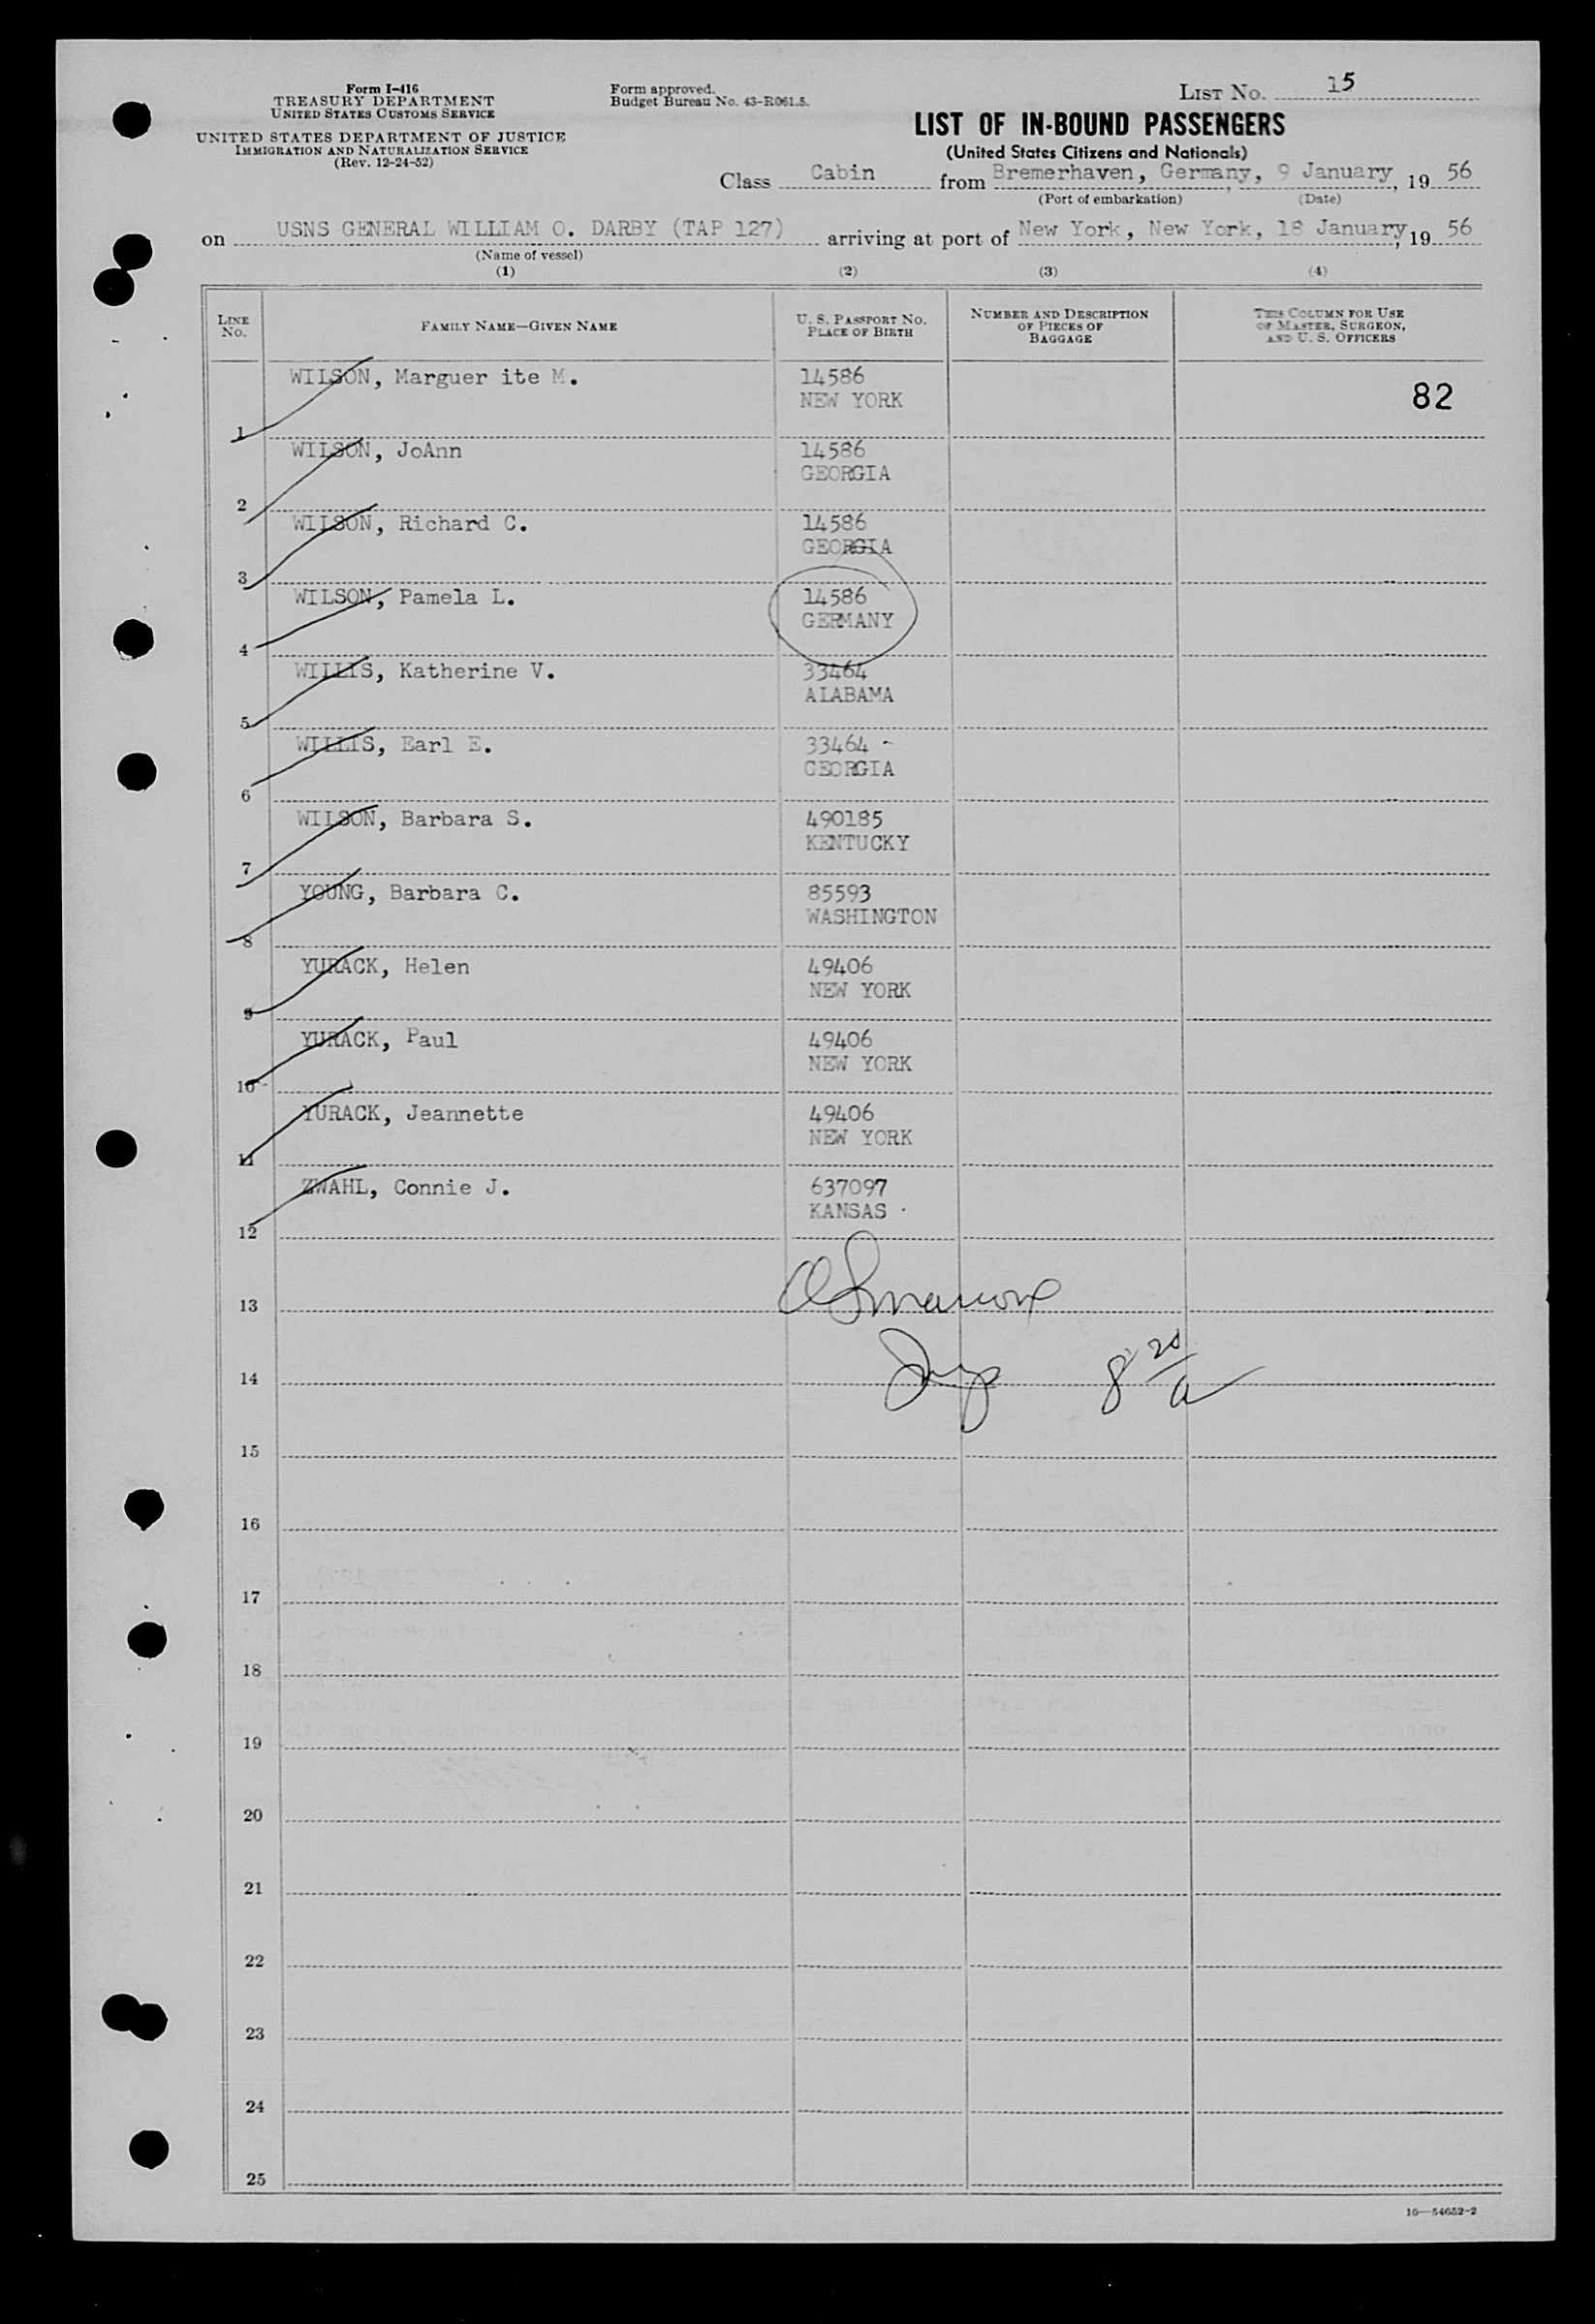 Form I-416
TREASURY DEPARTMENT
UNITED STATES CUSTOMS SERVICE
UNITED STATES DEPARTMENT OF JUSTICE
IMMIGRATION AND NATURALIZATION SERVICE
(Rev. 12-24-52)
Form approved.
Budget Bureau No. 43-R061.5.
LIST NO. 15
LIST OF IN-BOUND PASSENGERS
(United States Citizens and Nationals)
Class Cabin from Bremerhaven, Germany, 9 January, 19 56
(Port of embarkation) (Date)
on USNS GENERAL WILLIAM O. DARBY (TAP 127) arriving at port of New York, New York, 18 January, 19 56
(Name of vessel)
(1) (2) (3) (4)
LINE NO. FAMILY NAME—GIVEN NAME U. S. PASSPORT NO. PLACE OF BIRTH NUMBER AND DESCRIPTION OF PIECES OF BAGGAGE THIS COLUMN FOR USE OF MASTER, SURGEON, AND U. S. OFFICERS
WILSON, Marguer ite M. 14586
NEW YORK 82
1
WILSON, JoAnn 14586
GEORGIA
2
WILSON, Richard C. 14586
GEORGIA
3
WILSON, Pamela L. 14586
GERMANY
4
WILLIS, Katherine V. 33464
ALABAMA
5
WILLIS, Earl E. 33464 -
GEORGIA
6
WILSON, Barbara S. 490185
KENTUCKY
7
YOUNG, Barbara C. 85593
WASHINGTON
8
YURACK, Helen 49406
NEW YORK
9
YURACK, Paul 49406
NEW YORK
10
YURACK, Jeannette 49406
NEW YORK
11
ZWAHL, Connie J. 637097
KANSAS
12
13
14 8 20/a
15
16
17
18
19
20
21
22
23
24
25
16—54652-2